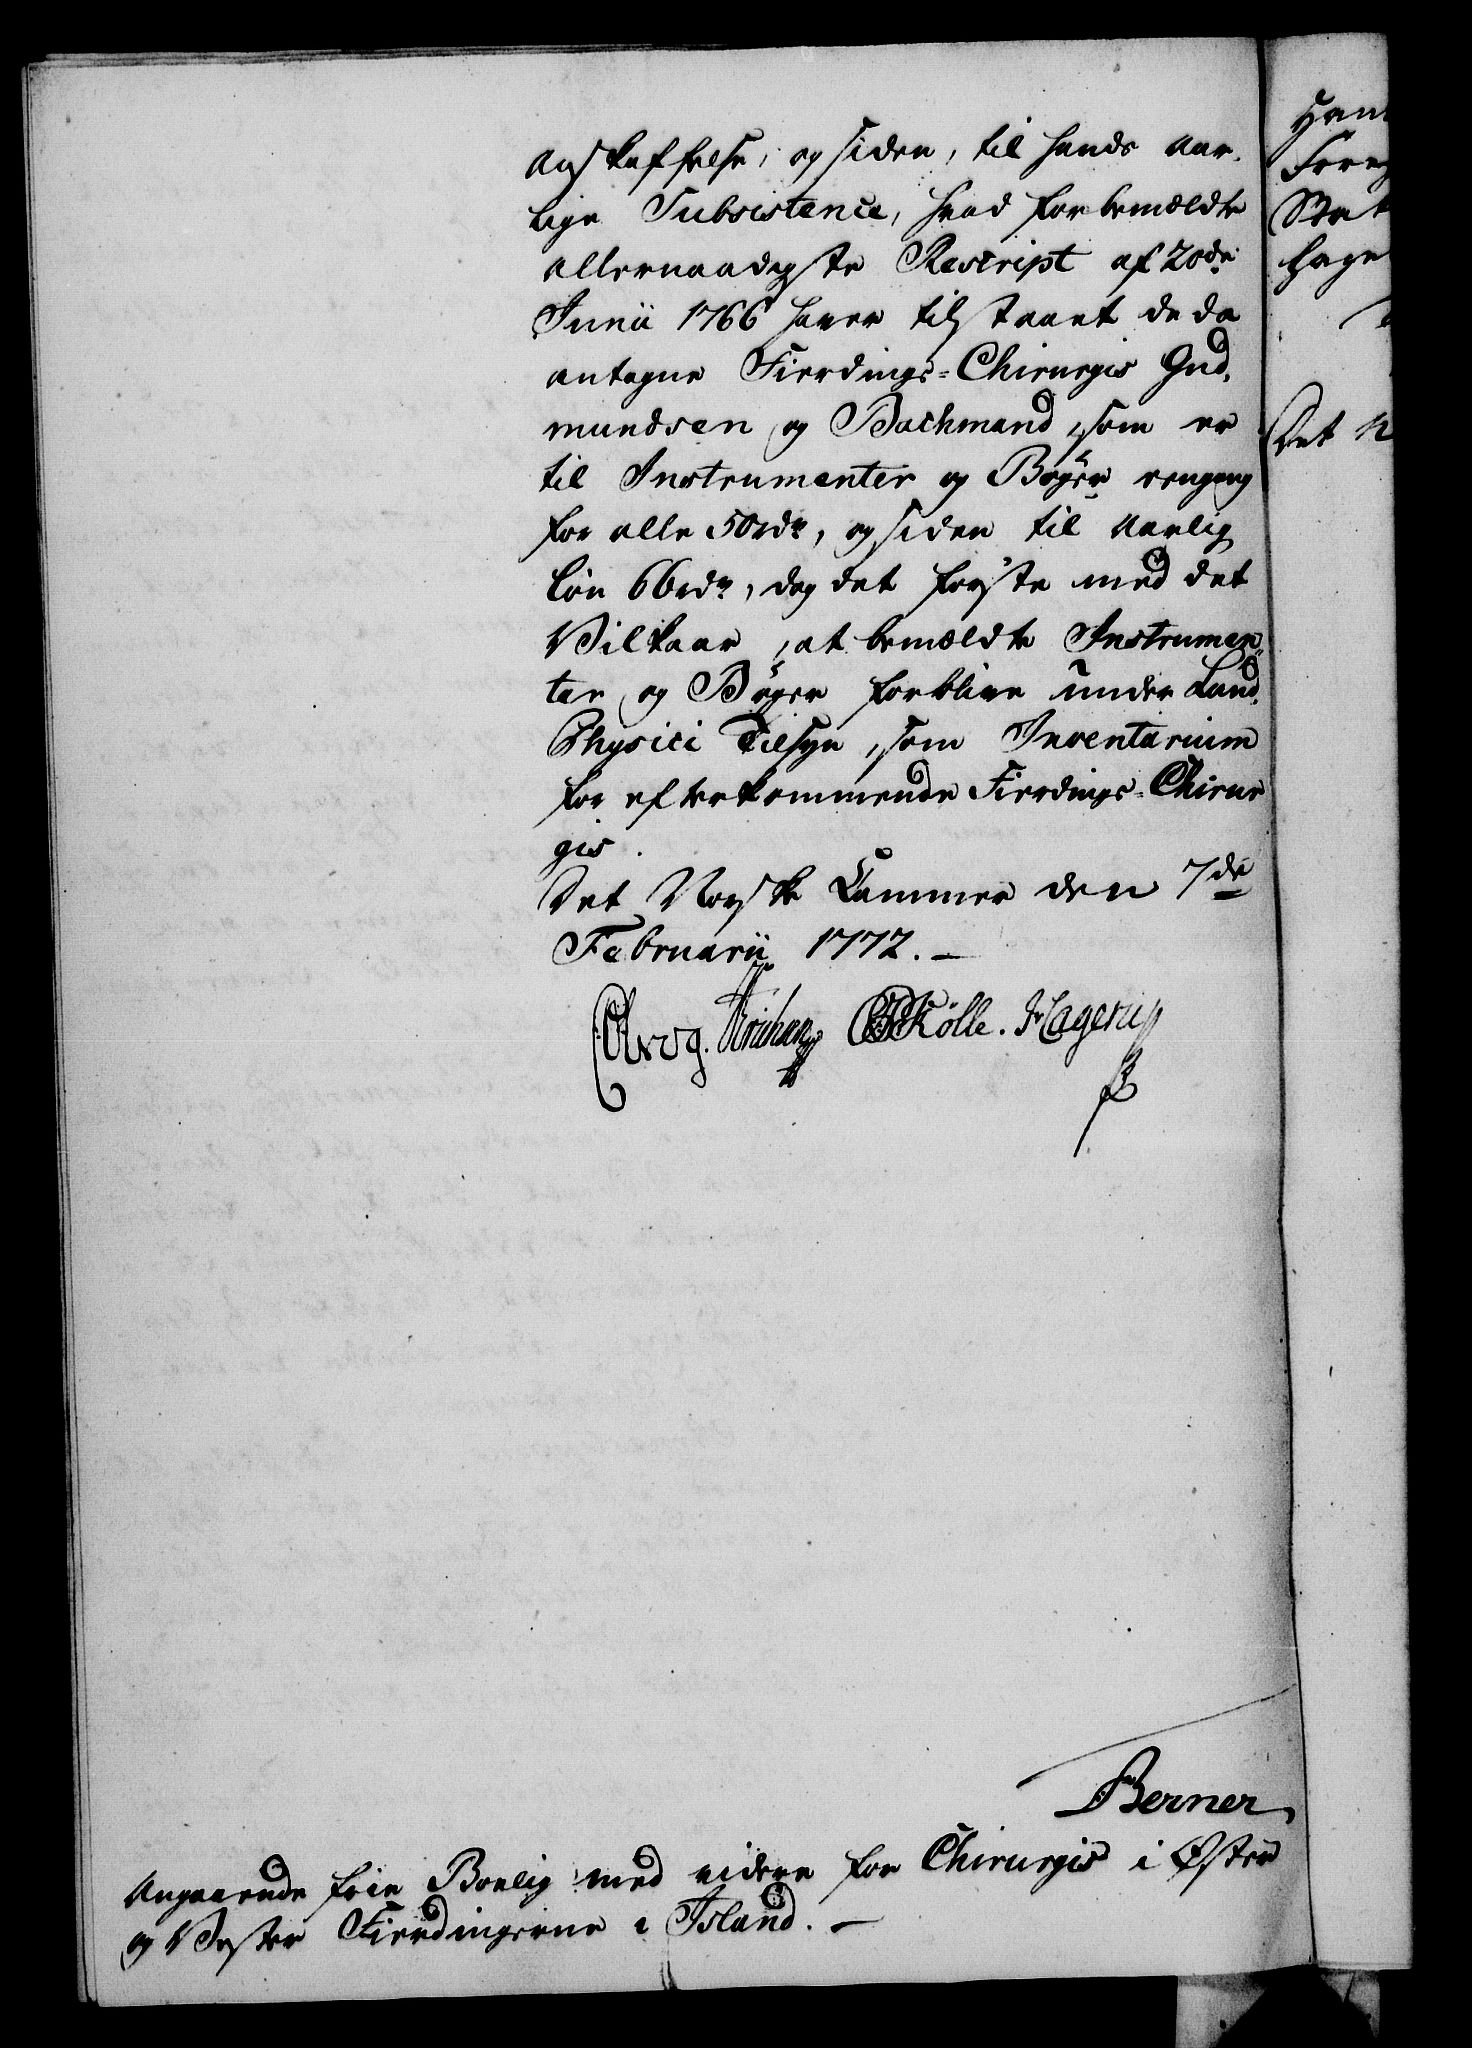 Anskaffelse, og siden, til hands aar-
lige Subsistence, hvad forbemældte
allernaadigste Rescript af 20de
Junii 1766 haver tilstaaet de da
antagne Fierdings-Chirurgis Gud-
mundsen og Bachmand, som er
til Instrumenter og Bøger eengang
for alle 50 rdr, og siden til aarlig
Løn 66 rdr, dog det første med det
Vilkaar, at bemældte Instrumen-
ter og Bøger forblive under Land-
Physici Tilsyn, som Inventarium
for efterkommende Fierdings-Chirur
gis.
Det Norske Kammer den 7de
Februarii 1772. —
Kølle. Hagerup
Berner
Angaaende frie Boelig med videre for Chirurgis i Øster
og Vester Fierdingerne i Island. —
Det